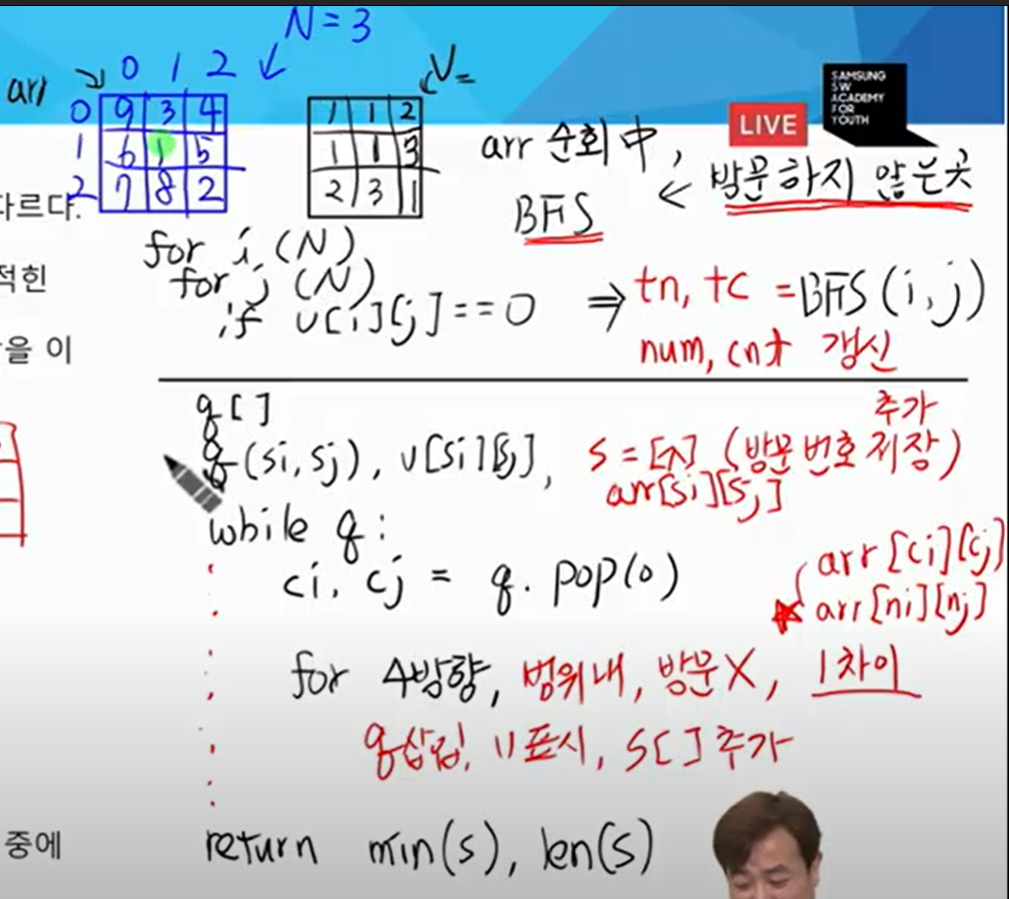 N = 3
arr
0 1 2
0 9 3 4
1 6 1 5
2 7 8 2
V=
1 1 2
1 1 3
2 3 1
LIVE
SAMSUNG
SW
ACADEMY
FOR
YOUTH
arr 순회 中,
BFS ← 방문하지 않은 곳
다르다.
적힌
을 이
for i (N)
for j (N)
if v[i][j] == 0 ⇒ tn, tc = BFS(i, j)
num, cnt 갱신
q[]
q(si, sj), v[si][sj], s = [ ] (방문 번호 저장)
추가
arr[si][sj]
while q:
ci, cj = q. pop(0)
arr[ci][cj]
arr[ni][nj]
for 4방향, 범위내, 방문X, 1차이
q삽입, v표시, s[] 추가
return min(s), len(s)
중에